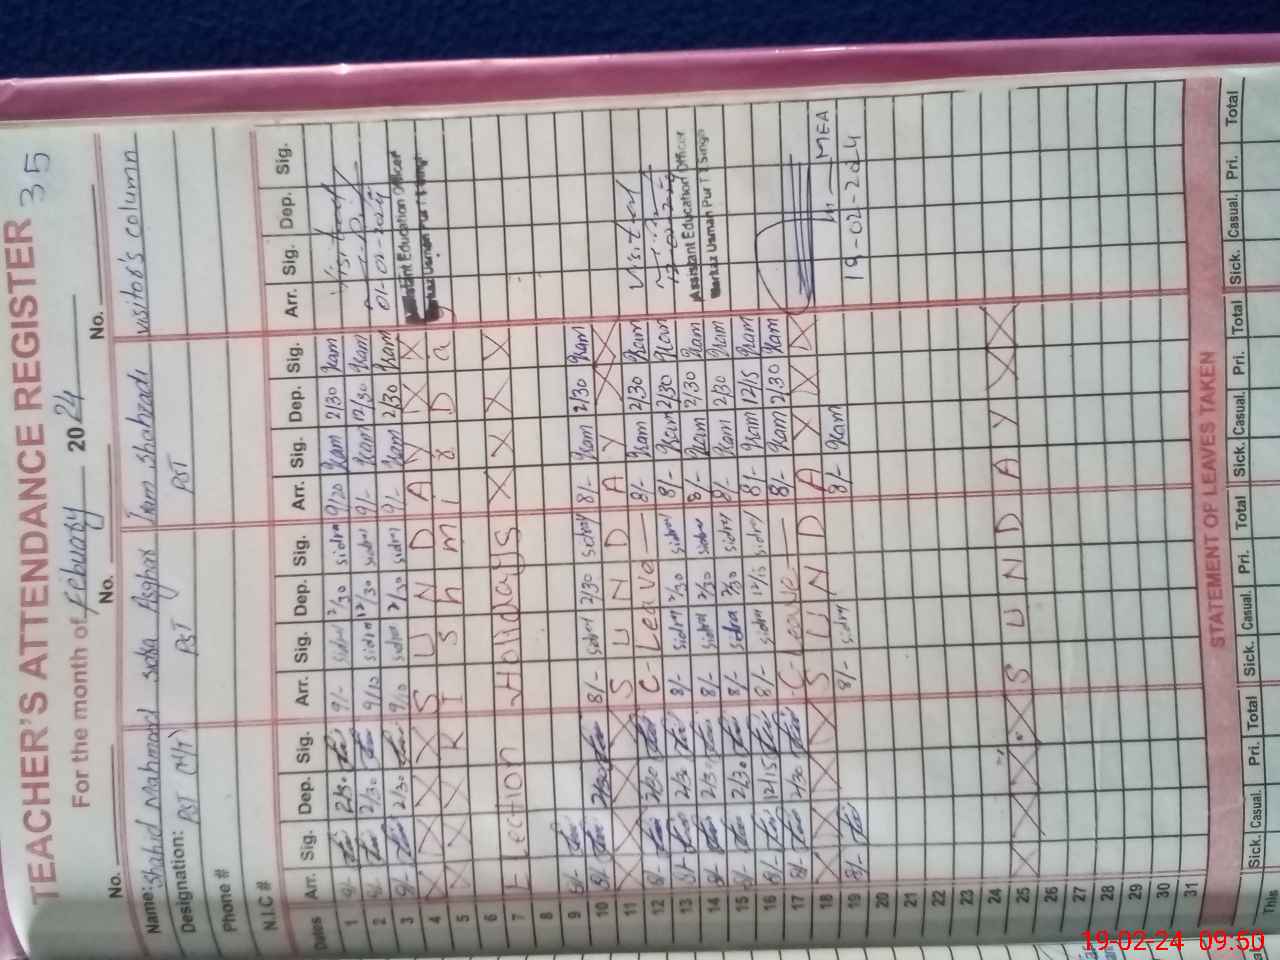 TEACHER'S ATTENDANCE REGISTER 35
For the month of February 2024
No. No. No.
Name: Shahid Mahmood Sidra Asghar Iram Shahzadi visitor's column
Designation: PST (H/T) PST PST
Phone #
N.I.C #
Dates Arr. Sig. Dep. Sig. Arr. Sig. Dep. Sig. Arr. Sig. Dep. Sig. Arr. Sig. Dep. Sig.
1 8/- 2/30 9/- sidra 2/30 sidra 9/20 2/30
2 8/- 2/30 9/10 sidra 12/30 sidra 9/- 12/30 01-02-2024
3 8/- 2/30 9/10 sidra 2/30 sidra 9/- 2/30 Assistant Education Officer
4 X X X X S U N D A Y X X Markaz Usman Pur
5 X X X K I S h m i r D a
6 X X X X
7 Election Holidays
8
9 8/-
10 8/- 2/30 8/- sidra 2/30 sidra 8/- 2/30
11 X X X X S U N D A Y X X Visited
12 8/- 2/30 C-Leave 8/- 2/30
13 8/- 2/30 8/- sidra 2/30 sidra 8/- 2/30 Assistant Education Officer
14 8/- 2/30 8/- sidra 2/30 sidra 8/- 2/30 Markaz Usman Pur
15 8/- 2/30 8/- sidra 2/30 sidra 8/- 2/30
16 8/- 12/15 8/- sidra 12/15 sidra 8/- 12/15
17 8/- 2/30 C-Leave 8/- 2/30
18 X X X X S U N D A Y X X MEA
19 8/- 8/- sidra 8/- 19-02-2024
20
21
22
23
24
25 X X X X S U N D A Y X X
26
27
28
29
30
31
STATEMENT OF LEAVES TAKEN
Sick. Casual. Pri. Total Sick. Casual. Pri. Total Sick. Casual. Pri. Total Sick. Casual. Pri. Total
This
19-02-24 09:50